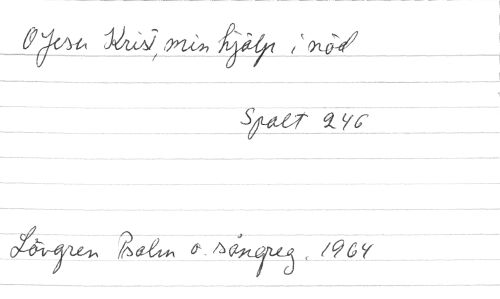 O Jesu Krist, min hjälp i nöd
Spalt 246
Lövgren Psalm o. sångreg. 1964